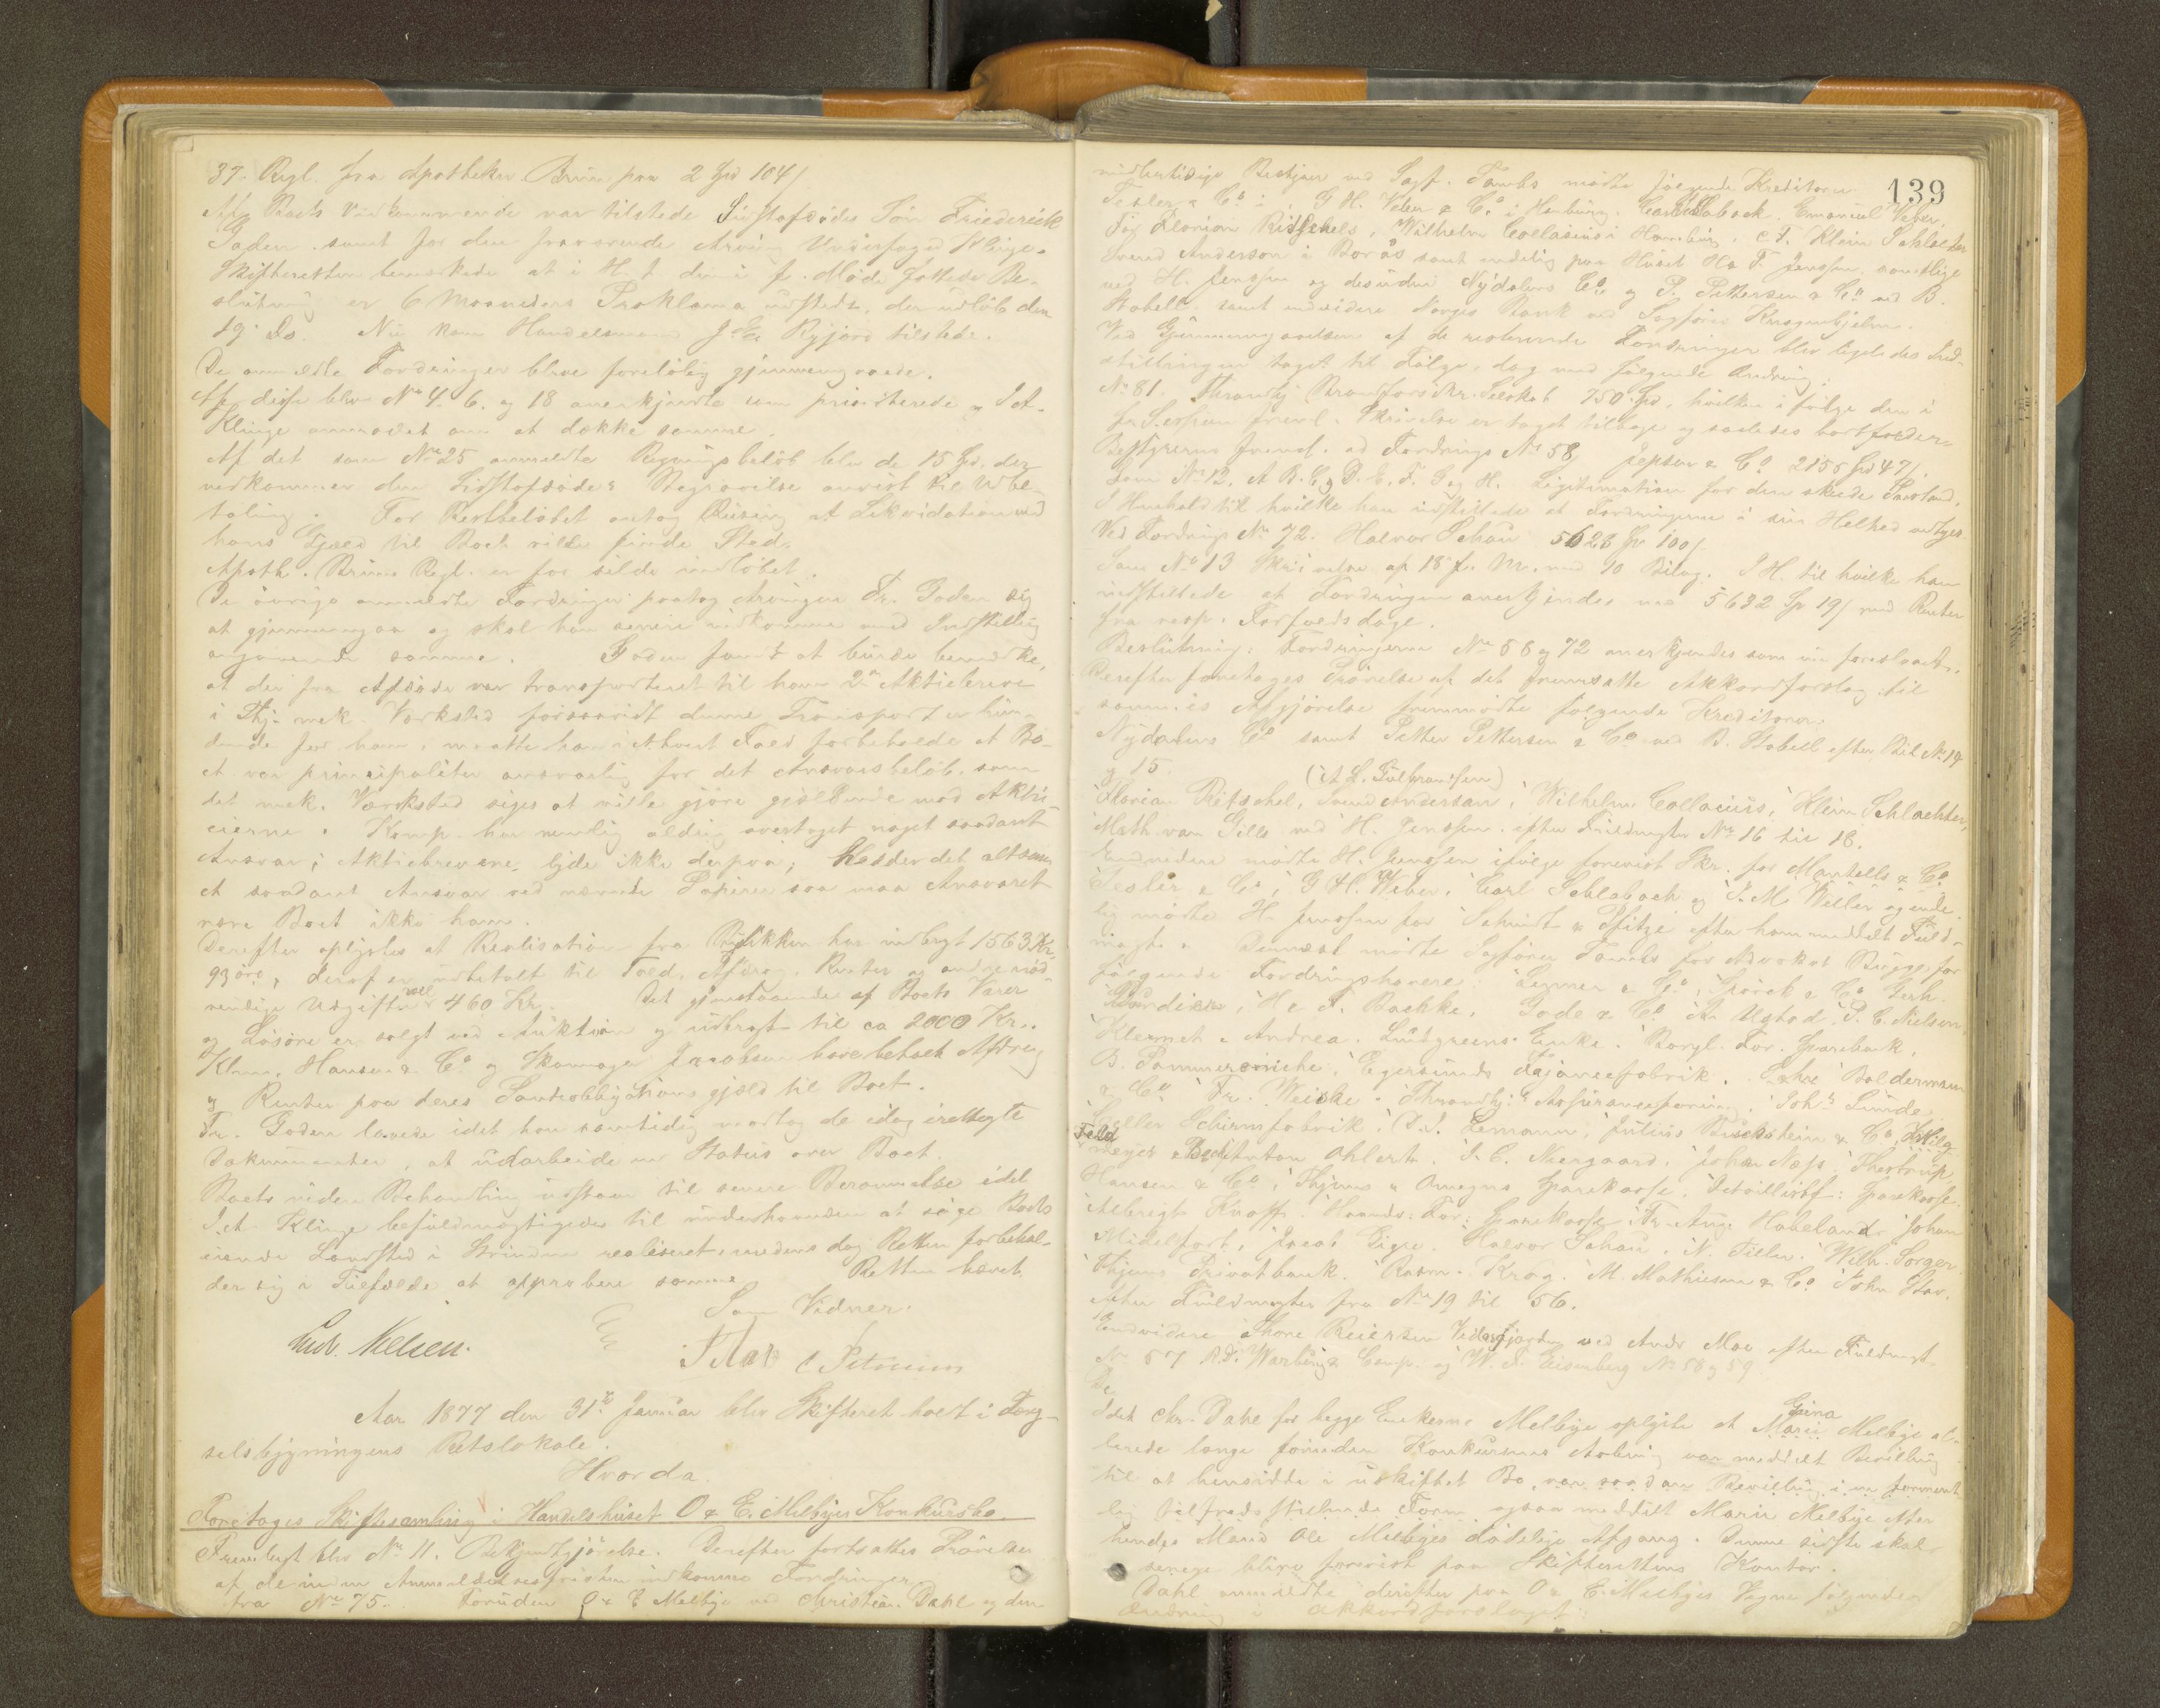 37. Regl. fra Apotheker Bruun paa 2 Spd 104/
Paa Boets Vedkommende var tilstede Sidstafdødes Søn Friederick
Gaden samt for den fraværende Arving Underfoged Klinge.
Skifteretten bemærkede at i H. t. den i f. Møde fattede Be-
slutning er 6 Maaneders Proklama udstedt, der udløb den
19. Ds. Nu kom Handelsmand J. E. Rygjord tilstede.
De anmeldte Fordringer bleve foreløbig gjennemgaaede.
Af disse blev No 4. 6. og 18 anerkjendte som prioriterede og S. A.
Klinge anmodet om at dække samme.
Af det som No 25 anmeldte Regningsbeløb blev de 15 Spd. der
vedkommer den Sidstafdødes Begravelse anvist til Udbe-
taling. For Restbeløbet antog Runing at Likvidation med
hans Gjæld til Boet vilde finde Sted.
Apoth. Bruuns Regl. er for silde indløbet.
De øvrige anmeldte Fordringer paatog Arvingen Fr. Gaden sig
at gjennemgaa og skal han senere indkomme med Indstilling
angaaende samme. Gaden fandt at burde bemærke,
at der fra Afdøde var transporteret til ham 2de Aktiebreve
i Thj. mek. Værksted forsaavidt denne Transport er bin-
dende for ham, maatte han i ethvert Fald forbeholde at Bo-
et var principaliter ansvarlig for det Ansvarsbeløb, som
det mek. Værksted siges at ville gjøre gjældende mod Aktie-
eierne. Komp. har nemlig aldrig overtaget noget saadant
Ansvar; Aktiebrevene lyde ikke derpaa; Hefder det altsaa
et saadant Ansvar ved nævnte Papirer saa maa Ansvaret
være Boet ikke ham.
Derefter oplystes at Realisation fra Butikken har indbragt 1563 Kr.
93 øre, deraf er udbetalt til Told, Afdrag, Renter og andre nød-
vendige Udgifter 460 Kr. Det gjenstaaende af Boets Varer
og Løsøre er solgt ved Auktion og udbragt til ca 2000 Kr.
Klem, Hansen & Co og Skomager Jacobsen have betalt Afdrag
og Renter paa deres Panteobligationsgjæld til Boet.
Fr. Gaden lovede idet han samtidig modtog de idag irettelagte
Dokumenter, at udarbeide en Status over Boet.
Boets videre Behandling udstaar til senere Berammelse idet
S. A. Klinge befuldmægtigedes til underhaanden at søge Boets
eiende Landsted i Strinden realiseret, imedens dog Retten forbehol-
der sig i Tilfælde at approbere samme. Retten hævet
Som Vidner.
Ludv. Nielsen.
C Petersen
Aar 1877 den 31te Januar blev Skifteret holdt i Fæng-
selsbygningens Retslokale.
Hvorda.
Foretoges Skiftesamling i Handelshuset O & E. Melbyes Konkursbo.
Fremlagt blev No 11. Bekjendtgjørelse. Derefter fortsattes Prøvelsen
af de inden Anmeldelsesfristen indkomne Fordringer
fra No 75. Foruden O & E Melbye ved Christian Dahl og den
139
midlertidige Bestyrer ved Sagf. Tambs mødte følgende Kreditorer
Tesler & Co i, G H. Weber & Co i Hamburg. Carl Schlabach. Emanuel Weber,
Fig. Florian Ritschels, Wilhelm Collasius i Hamburg, C F. Klein Schlachter
Svend Anderson i Borås samt endelig paa Huset Hs F. Jenssen, samtlige
ved H. Jenssen og desuden Nydalens Co og P. Pettersen & Co ved B.
Stabell samt endvidere Norges Bank ved Sagfører Kragenhjelm.
Ved Gjennemgaaelsen af de resterende Fordringer blev ligeledes Ind-
stillingen taget til Følge, dog med følgende Ændring:
No 81. Throndhj. Brandforsikr. Selskab 750 Spd. hvilken i Følge den i
f. Session freml. Skrivelse er taget tilbage og saaledes bortfalder.
Bestyreren freml. ad Fordrings No 58 Jepsen & Co 2155 Spd 47/.
Som No 12. A B. C. D. E. F. G og H. Legitimation for den skeede Panteland.
I Henhold til hvilke han indstillede at Fordringerne i sin Helhed vedtages
Ved Fordrings No 72. Halvor Schau 5628 Sp 100/
Som No 13 Skrivelse af 18 f. M. med 10 Bilag. I H. til hvilke han
indstillede at Fordringen anerkjendes med 5632 Sp 19/ med Renter
fra resp. Forfaldsdage.
Beslutning: Fordringerne No 58 og 72 anerkjendes som nu foreslaaet.
Derefter foretoges Prøvelse af det fremsatte Akkordforslag. Til
sammes Afgjørelse fremmødte følgende Kreditorer.
Nydalens Co samt Petter Pettersen & Co ved B. Stabell efter Bil No 14
og 15.
(A. L. Gulbranssen)
Florian Ritschel, Svend Anderson, Wilhelm Collacius, Klein Schlachter,
Math. van Gills ved H. Jenssen efter Fuldmagter No 16 til 18.
Endvidere mødte H. Jenssen ifølge forevist Skr. for Mantells & Co
Tesler & Co, G H. Weber, Carl Schlabach og J. M. Willer og ende-
lig mødte H. Jenssen for Schmidt & Pfitze efter ham meddelt Fuld-
magt. Dernæst mødte Sagfører Tambs for Advokat Bugge for
følgende Fordringshavere: Lemer & Co, Spörck & Co Gerh.
H & F. Bachke, Gade & Co, A. Ugstad, P. C. Nielsen,
Klemet & Andrea. Lundgreens Enke. Borgl. For. Sparebank,
B. Sammereriche, Egersunds Fajancefabrik, Boldermann
& Co Fr. Weiske. Throndhj. Assuranceforening, Johs Lunde
Schirmfabrik, D. J. Lemann, Julius Buckstein & Co,
Anton Ohlert, J. C. Neergaard, Johan Næss, Thostrup
Hansen & Co, Thjems & Omegns Sparekasse, Sparekasse
Albregt Knoff, Haands. For. Sparekasse, Fr. Aug. Habeland, Johan
Midelfart, Jacob Digre, Halvor Schau, N. Tiller, Wilh. Sorger,
Thjems Privatbank, Rasm. Krog, M. Mathiesen & Co, John Stav,
efter Fuldmagter fra No 19 til 56.
Endvidere Thore Reiersen ved Andr Moe efter Fuldmagt
No 57 R. D. Warburg & Comp. og W. F. Eisenberg No 58 og 59
De
Gina
Idet Chr. Dahl for begge Enkerne Melbye oplyste at Marie Melbye al-
lerede længe forinden Konkursens Aabning var meddelt Bevilling
til at hensidde i uskiftet Bo, var saadan Bevilling i en forment
lig tilfredsstillende Form ogsaa meddelt Marie Melbye efter
hendes Mand Ole Melbyes dødelige Afgang. Denne sidste skal
senere blive forevist paa Skifterettens Kontor.
Dahl anmeldte derefter paa O & E. Melbyes Vegne følgende
Ændring i Akkordforslaget: